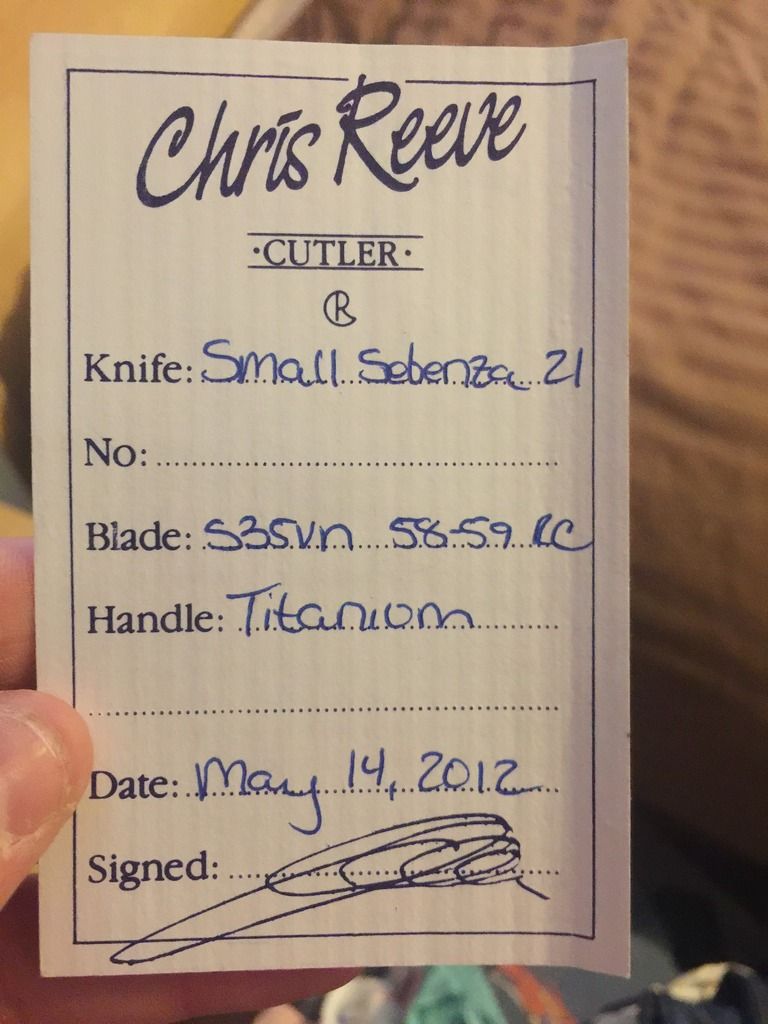 Chris Reeve
·CUTLER·
R
Knife: Small Sebenza 21
No:
Blade: S35vn 58-59 RC
Handle: Titanium
Date: May 14, 2012
Signed: